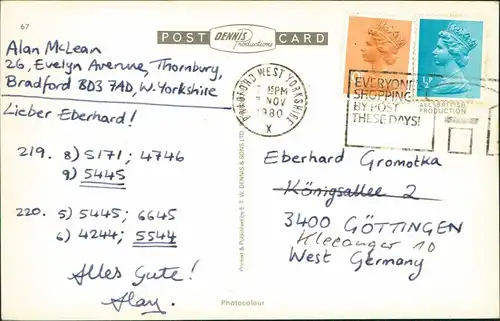 67
POST DENNIS Productions CARD
Alan McLean
26, Evelyn Averune, Thornbury,
Bradford BD3 7AD, W. Yorkshire
Lieber Eberhard!
219. 8) 5171; 4746
9) 5445
220. 5) 5445; 6645
6) 4244; 5544
Alles Gute!
Alan.
Printed & Published by E. T. W. DENNIS & SONS LTD.
Photocolour
BRADFORD WEST YORKSHIRE
15PM
NOV
1980
X
EVERYONE
SHOPPING
BY POST
THESE DAYS!
½P
ALL-BRITISH
PRODUCTION
Eberhard Gromotka
Königsallee 2
3400 GÖTTINGEN
Kleeanger 10
West Germany